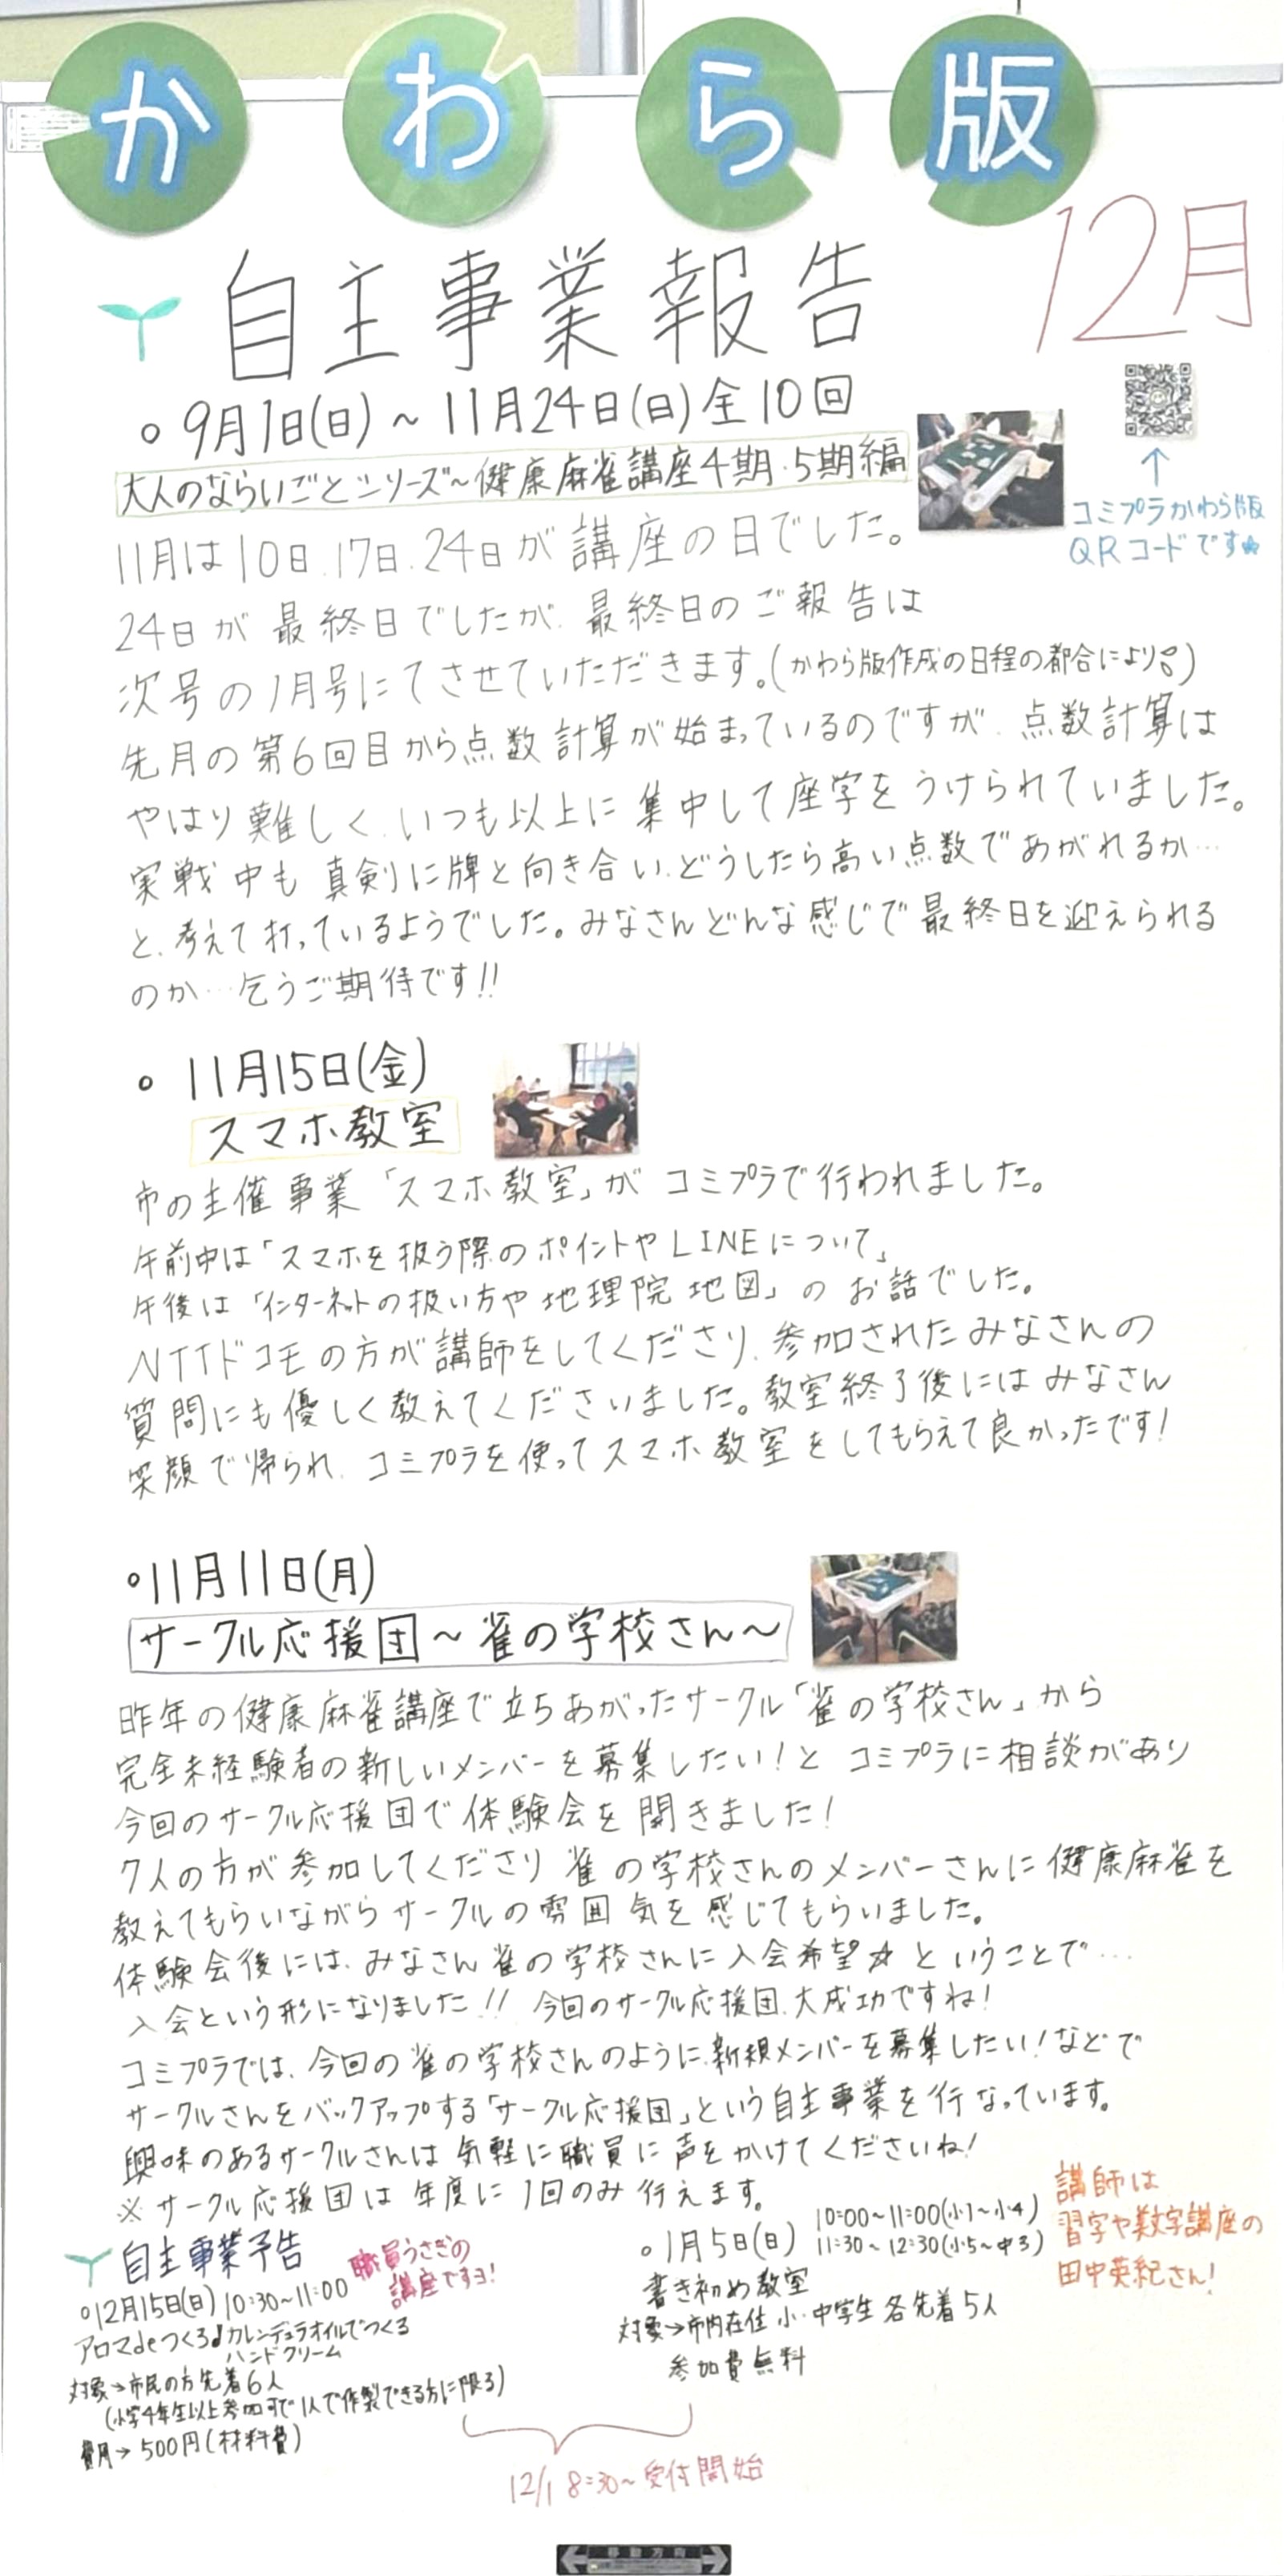 かわら版
12月
自主事業報告
○9月1日(日)～11月24日(日)全10回
大人のならいごとシリーズ～健康麻雀講座4期・5期編
↑
コミプラかわら版
QRコードです★
11月は10日、17日、24日が講座の日でした。
24日が最終日でしたが、最終日のご報告は
次号の1月号にてさせていただきます。(かわら版作成の日程の都合により)
先月の第6回目から点数計算が始まっているのですが、点数計算は
やはり難しく、いつも以上に集中して座学をうけられていました。
実戦中も真剣に牌と向き合い、どうしたら高い点数であがれるか…
と、考えて打っているようでした。みなさんどんな感じで最終日を迎えられる
のか…乞うご期待です!!
○11月15日(金)
スマホ教室
市の主催事業「スマホ教室」がコミプラで行われました。
午前中は「スマホを扱う際のポイントやLINEについて」
午後は「インターネットの扱い方や地理院地図」のお話でした。
NTTドコモの方が講師をしてくださり、参加されたみなさんの
質問にも優しく教えてくださいました。教室終了後にはみなさん
笑顔で帰られ、コミプラを使ってスマホ教室をしてもらえて良かったです!
○11月11日(月)
サークル応援団～雀の学校さん～
昨年の健康麻雀講座で立ちあがったサークル「雀の学校さん」から
完全未経験者の新しいメンバーを募集したい!とコミプラに相談があり
今回のサークル応援団で体験会を開きました!
7人の方が参加してくださり雀の学校さんのメンバーさんに健康麻雀を
教えてもらいながらサークルの雰囲気を感じてもらいました。
体験会後には、みなさん雀の学校さんに入会希望☆ということで…
入会という形になりました!!今回のサークル応援団、大成功ですね!
コミプラでは、今回の雀の学校さんのように、新規メンバーを募集したい!などで
サークルさんをバックアップする「サークル応援団」という自主事業を行なっています。
興味のあるサークルさんは気軽に職員に声をかけてくださいね!
※サークル応援団は年度に1回のみ行えます。
自主事業予告
職員うさぎの
講座ですヨ!
○12月15日(日)10:30～11:00
アロマdeつくる♪カレンデュラオイルでつくる
ハンドクリーム
対象→市民の方先着6人
(小学4年生以上参加可で1人で作製できる方に限る)
費用→500円(材料費)
○1月5日(日) 10:00～11:00(小1～小4)
11:30～12:30(小5～中3)
書き初め教室
対象→市内在住小・中学生各先着5人
参加費無料
講師は
習字や数字講座の
田中英紀さん!
12/1 8:30～受付開始
移動方向